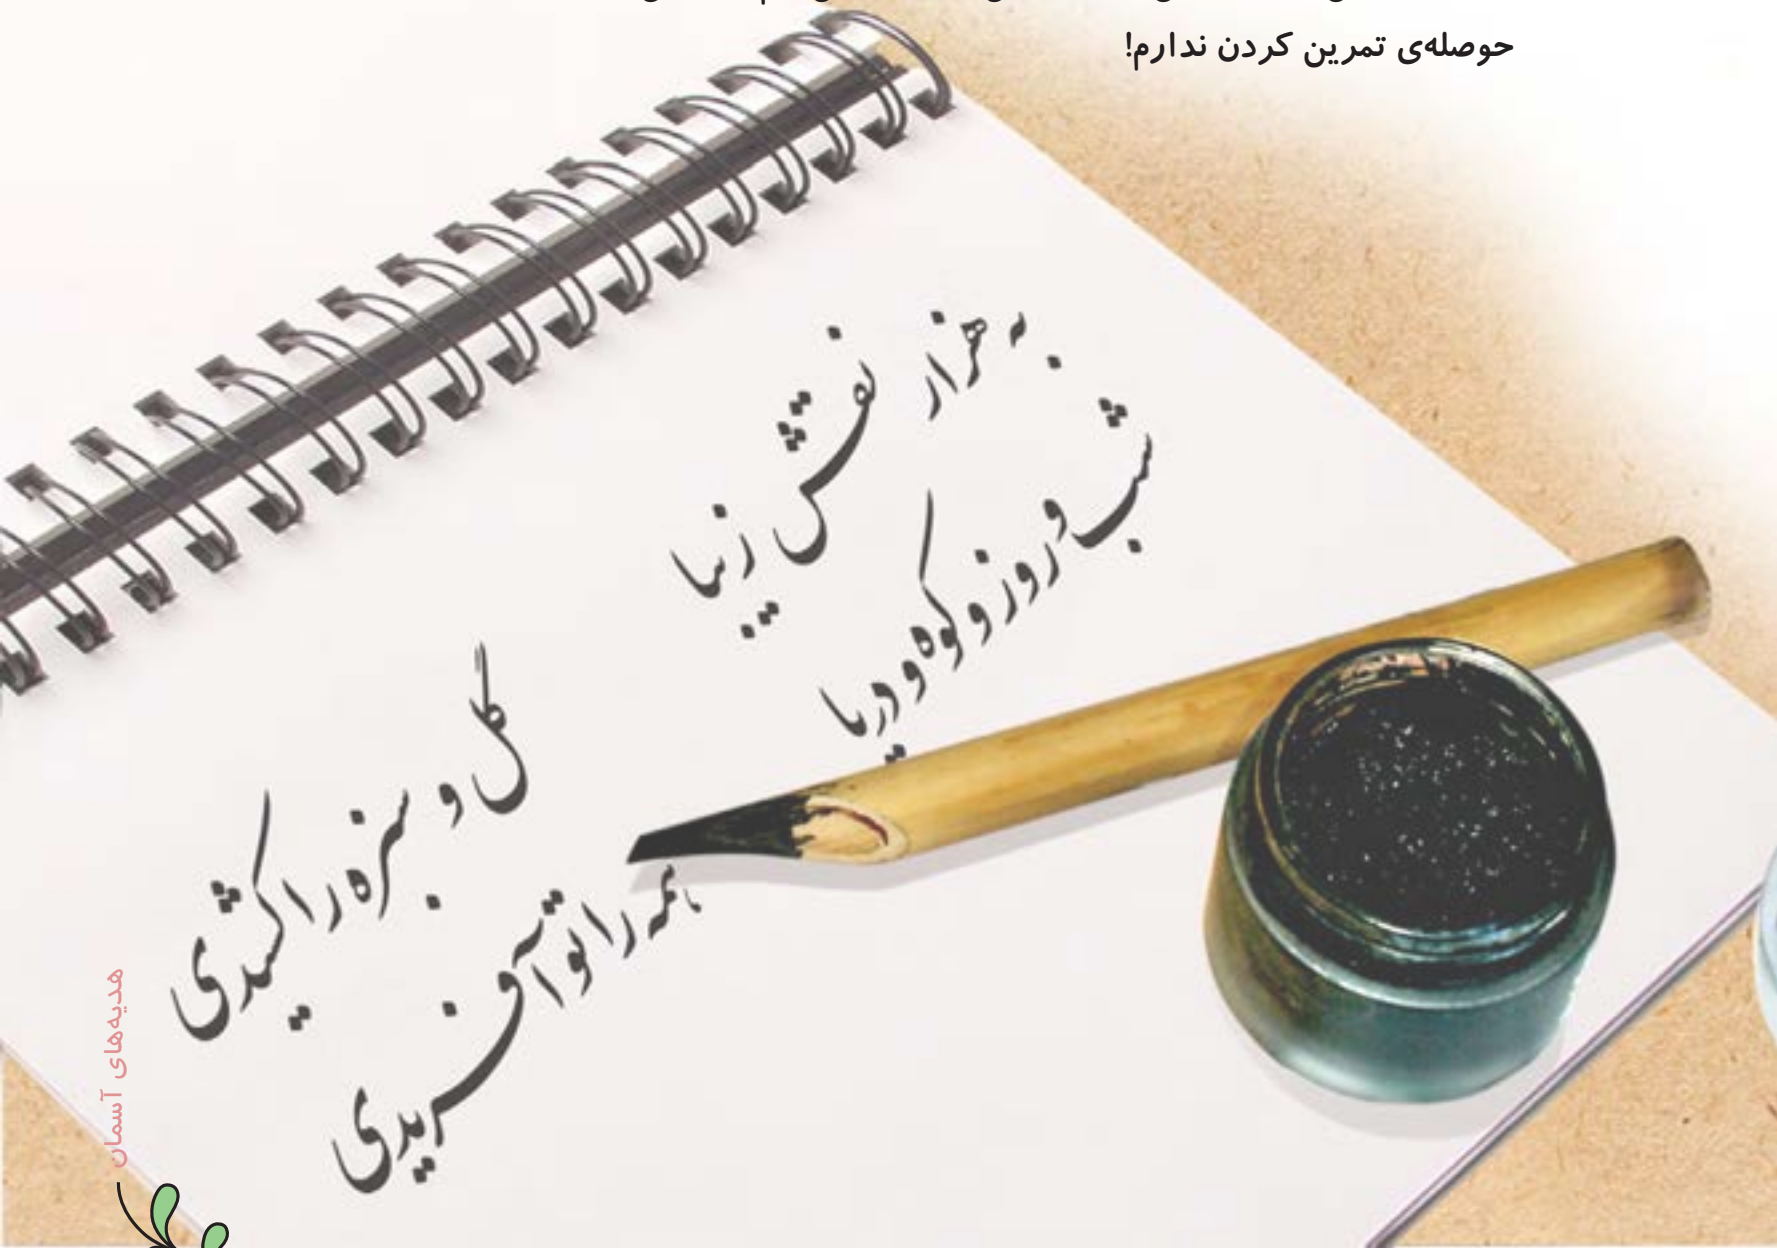 حوصله‌ی تمرین کردن ندارم!
به هزار نقش زیبا
گل و سبزه را کشیدی
شب و روز و کوه و دریا
همه را تو آفریدی
هدیه‌های آسمان